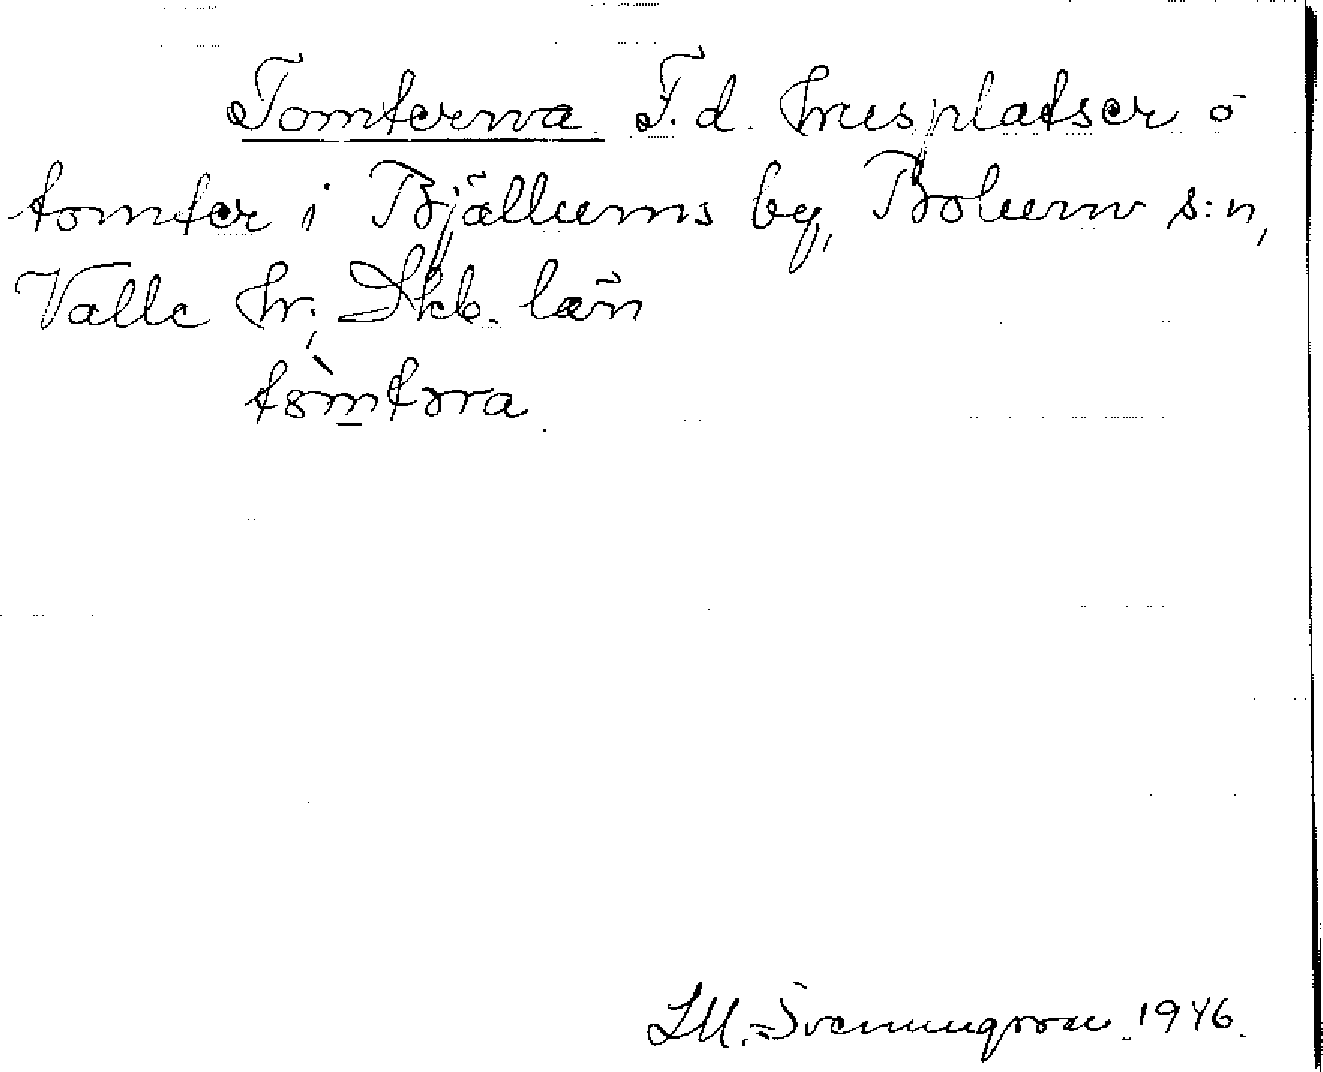 Tomterna F.d. husplatser o
tomter i Bjällums by, Bolum s:n,
Valle hr, Skb. län
tòmtora
1946.